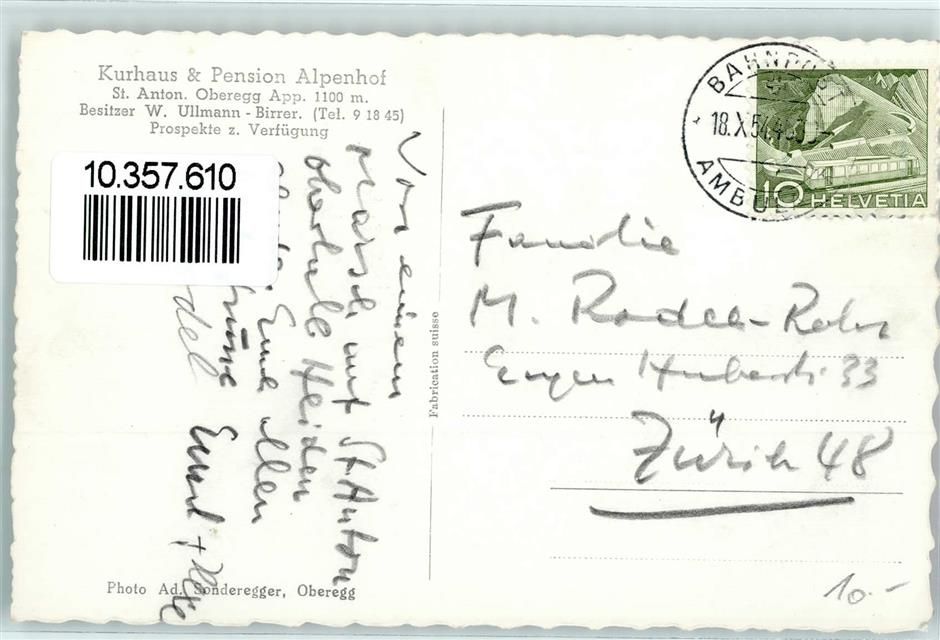 Kurhaus & Pension Alpenhof
St. Anton. Oberegg App. 1100 m.
Besitzer W. Ullmann - Birrer. (Tel. 9 18 45)
Prospekte z. Verfügung
10.357.610
Von einem
Marsch auf St. Anton
oberhalb Heiden
Euch allen
Grüsse
Fabrication suisse
Photo Ad. Sonderegger, Oberegg
BAHNPOS
18.X.54
AMBUL
10 HELVETIA
Familie
M.
Eugen Huberstr 33
Zürich 48
10.-